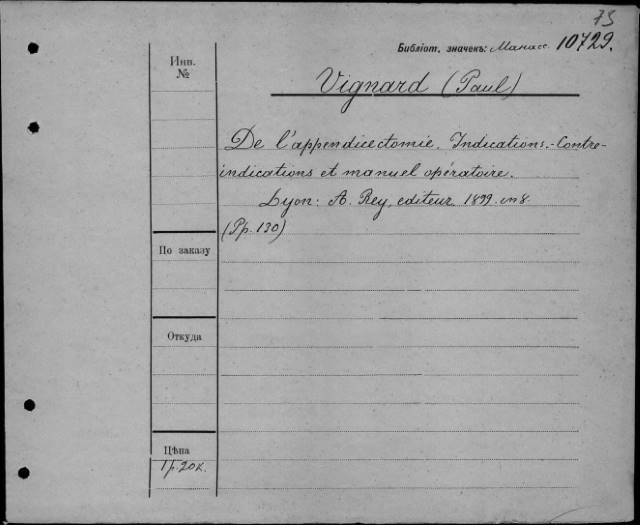 75
Библіот. значекъ: Манасс. 10729.
Инв.
№
Vignard (Paul)
De l'appendicectomie. Indications.-Contre-
indications et manuel opératoire.
Lyon: A. Rey, editeur. 1899. in 8.
(Pp. 130)
По заказу
Откуда
Цѣна
1 р. 20 к.